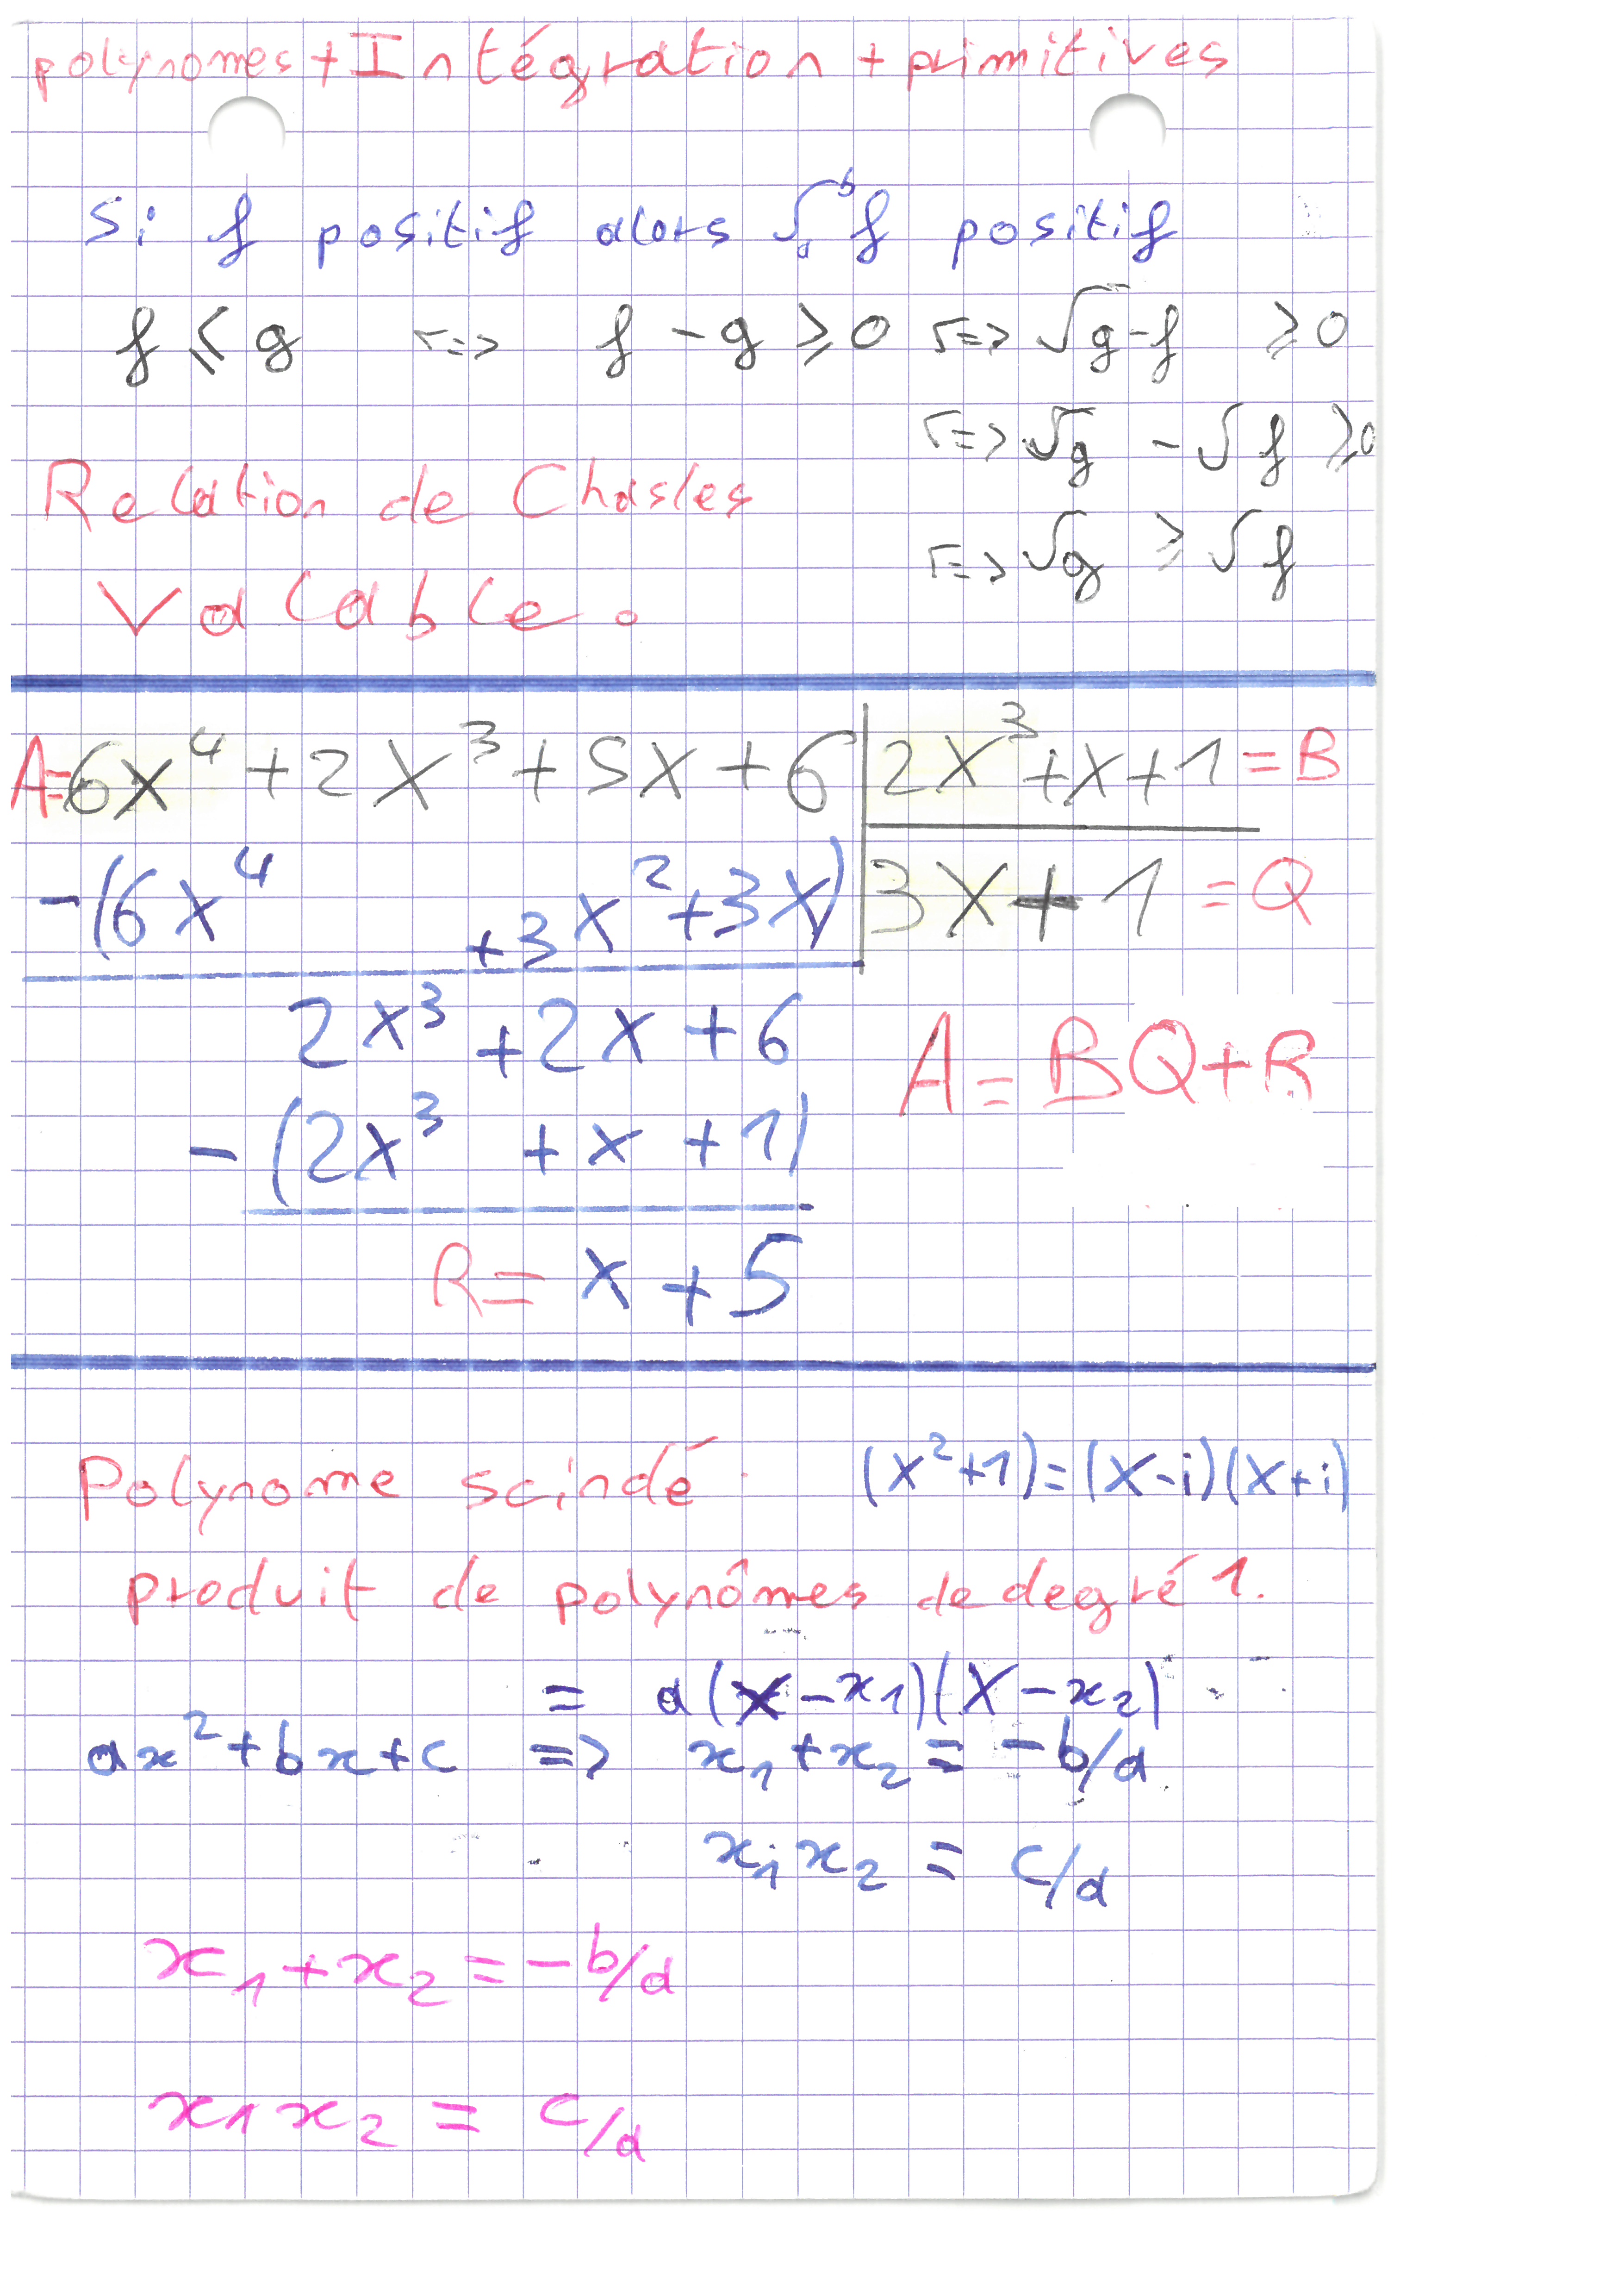 polynomes + Intégration + primitives
Si f positif alors ∫ₐᵇ f positif
f ≤ g => f - g ≥ 0 => ∫g-f ≥ 0
=> ∫g - ∫f ≥ 0
Relation de Chasles
=> ∫g ≥ ∫f
Valable.
A=6X⁴ + 2X³ + 5X + 6 | 2X³ + X + 1 = B
-(6X⁴ + 3X² + 3X) | 3X + 1 = Q
2X³ + 2X + 6
A = BQ + R
- (2X³ + X + 1)
R = X + 5
Polynome scindé (X²+1)=(X-i)(X+i)
produit de polynômes de degré 1.
= a(X-x₁)(X-x₂)
ax²+bx+c => x₁+x₂ = -b/a
x₁x₂ = c/a
x₁+x₂ = -b/a
x₁x₂ = c/a